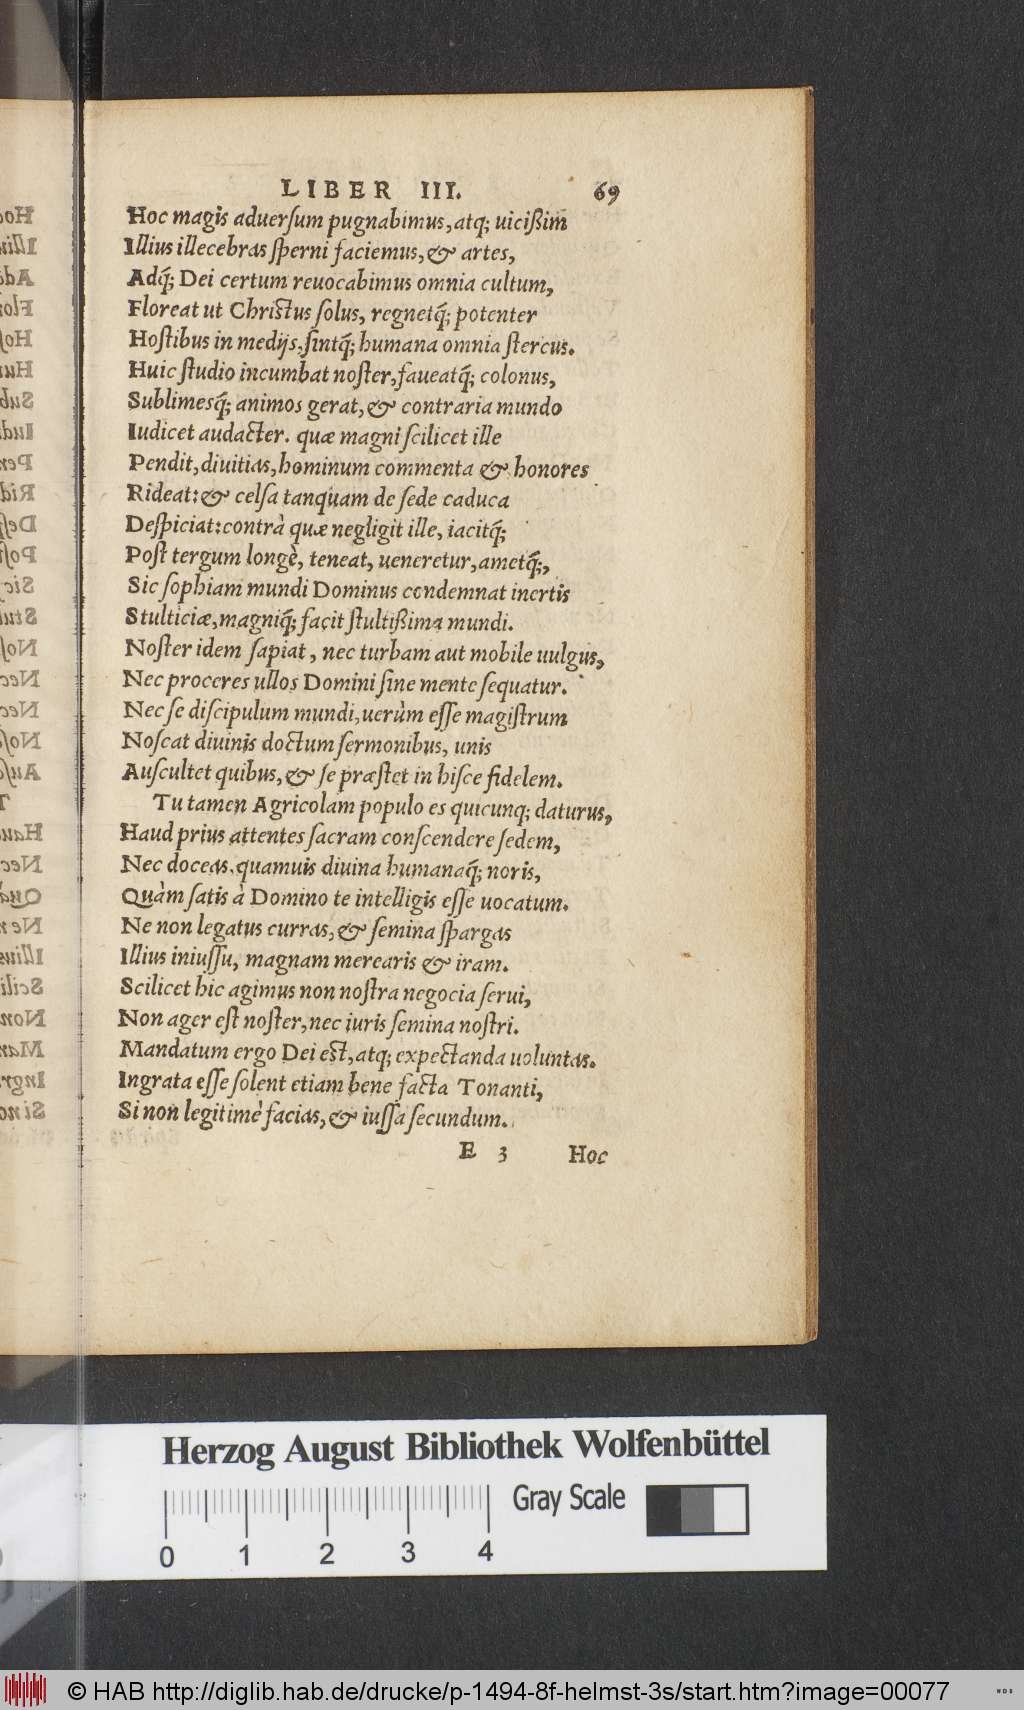 LIBER III. 69
Hoc magis aduerſum pugnabimus, atq; uicißim
Illius illecebras ſperni faciemus, & artes,
Adq́; Dei certum reuocabimus omnia cultum,
Floreat ut Chriſtus ſolus, regnetq́; potenter
Hoſtibus in medijs, ſintq́; humana omnia ſtercus.
Huic ſtudio incumbat noſter, faueatq́; colonus,
Sublimesq́; animos gerat, & contraria mundo
Iudicet audacter. quæ magni ſcilicet ille
Pendit, diuitias, hominum commenta & honores
Rideat: & celſa tanquam de ſede caduca
Deſpiciat: contrà quæ negligit ille, iacitq́;
Poſt tergum longè, teneat, ueneretur, ametq́;,
Sic ſophiam mundi Dominus condemnat inertis
Stulticiæ, magniq́; facit ſtultißima mundi.
Noſter idem ſapiat, nec turbam aut mobile uulgus,
Nec proceres ullos Domini ſine mente ſequatur.
Nec ſe diſcipulum mundi, uerùm eſſe magiſtrum
Noſcat diuinis doctum ſermonibus, unis
Auſcultet quibus, & ſe præſtet in hiſce fidelem.
Tu tamen Agricolam populo es quicunq; daturus,
Haud prius attentes ſacram conſcendere ſedem,
Nec doceas, quamuis diuina humanaq́; noris,
Quàm ſatis à Domino te intelligis eſſe uocatum.
Ne non legatus curras, & ſemina ſpargas
Illius iniuſſu, magnam merearis & iram.
Scilicet hic agimus non noſtra negocia ſerui,
Non ager eſt noſter, nec iuris ſemina noſtri.
Mandatum ergo Dei eſt, atq; expectanda uoluntas.
Ingrata eſſe ſolent etiam bene facta Tonanti,
Si non legitimè facias, & iuſſa ſecundum.
E 3 Hoc
Herzog August Bibliothek Wolfenbüttel
Gray Scale
0 1 2 3 4
© HAB http://diglib.hab.de/drucke/p-1494-8f-helmst-3s/start.htm?image=00077